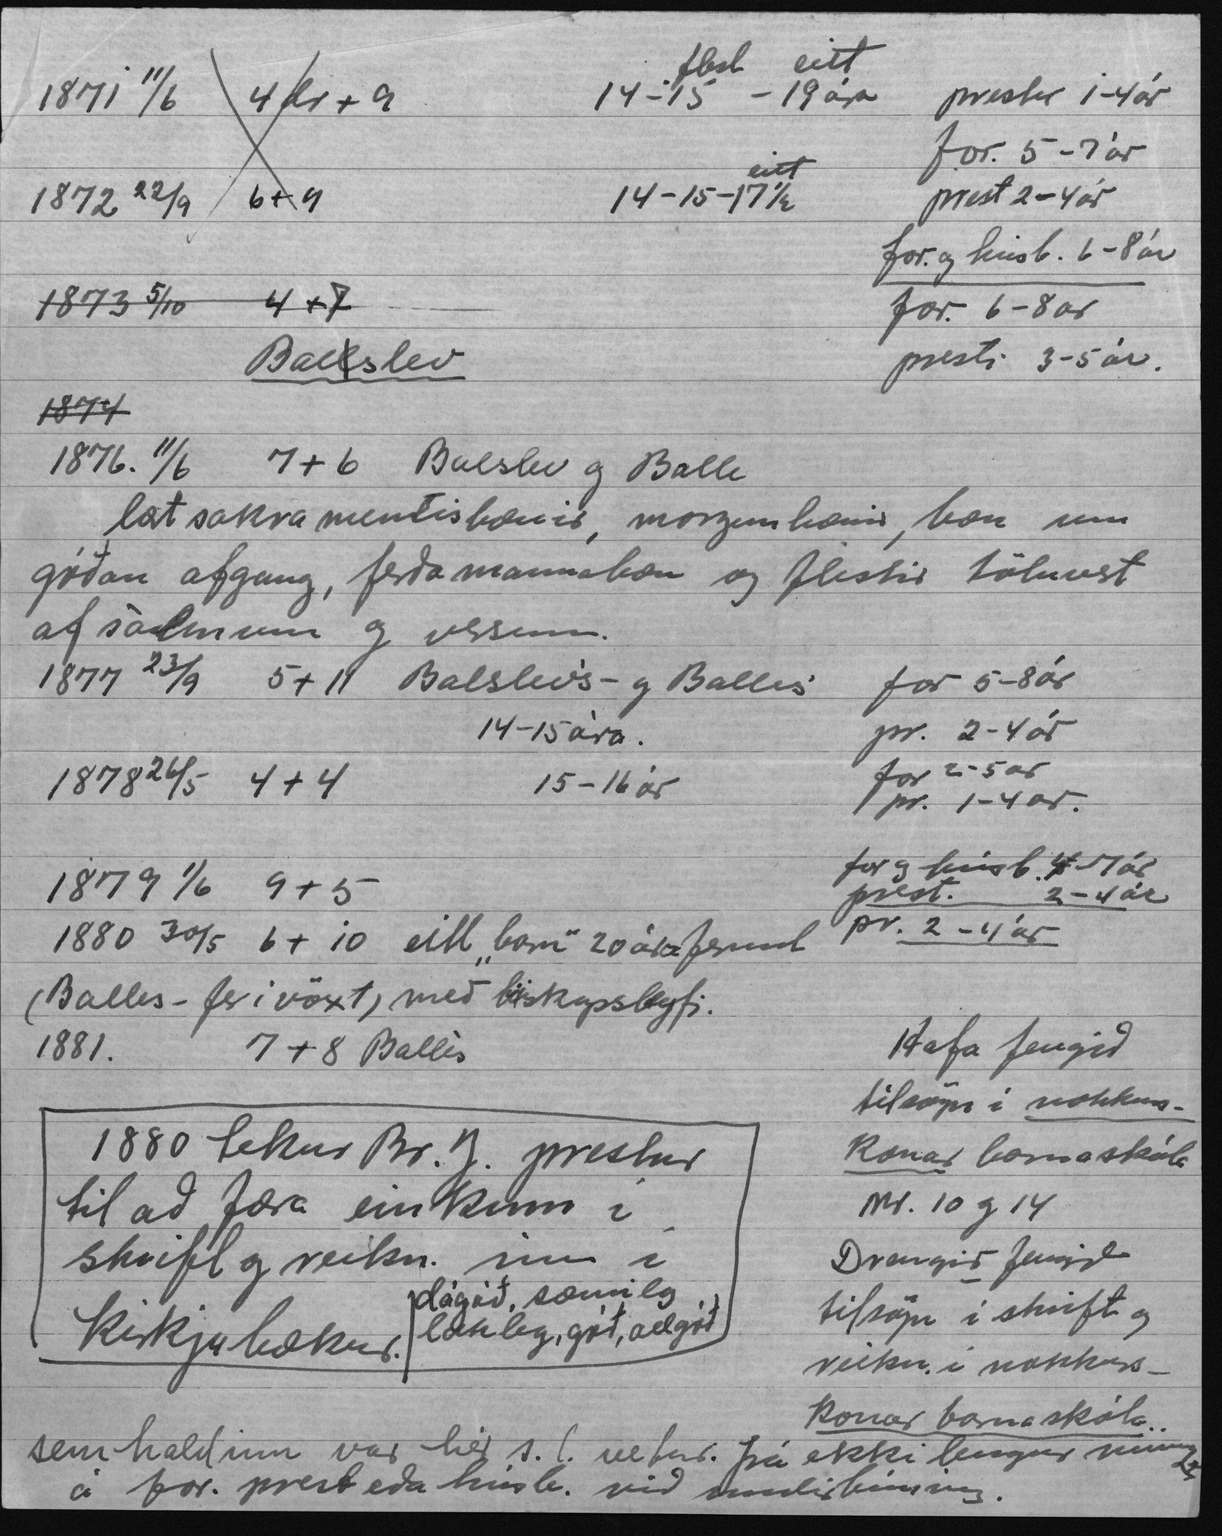 flest eitt
1871 11/6 4 dr + 9 14-15 - 19 ára prestur 1-4 ár
for. 5-7 ár
eitt
1872 22/9 6+9 14-15-17½ prest 2-4 ár
for. og húsb. 6-8 ár
1873 5/10 4+7 for. 6-8 ar
Balslev presti 3-5 ár.
1874
1876. 11/6 7+6 Balslev og Balle
læt sakramentisbænir, morgunbænir, bæn um
góðan afgang, ferðamannabæn og flestir töluvert
af sálmum og versum.
1877 23/9 5+11 Balslevs- og Balles for 5-8 ár
14-15 ára. pr. 2-4 ár
1878 26/5 4+4 15-16 ár for 2-5 ar
pr. 1-4 ar.
for og húsb. 4-7 ár
1879 1/6 9+5 prest. 2-4 ár
1880 30/5 6+10 eitt „barn" 20 ára fermt pr. 2-4 ár
(Balles- fer í vöxt) með biskupsleyfi.
1881. 7+8 Balles
Hafa fengið
tilsögn í nokkurs-
konar barnaskóla
Nr. 10 og 14
Drengir fengið
tilsögn í skrift og
reikn. í nokkurs-
konar barnaskóla..
1880 tekur Br. J. prestur
til að færa einkunn í
skrift og reikn. inn í
kirkjubækur.
dágóð, sæmileg
lakleg, góð, allgóð
sem haldinn var hér s.l. vetur. Frá ekki lengur minnst
á for. prest eða húsb. við undirbúning.